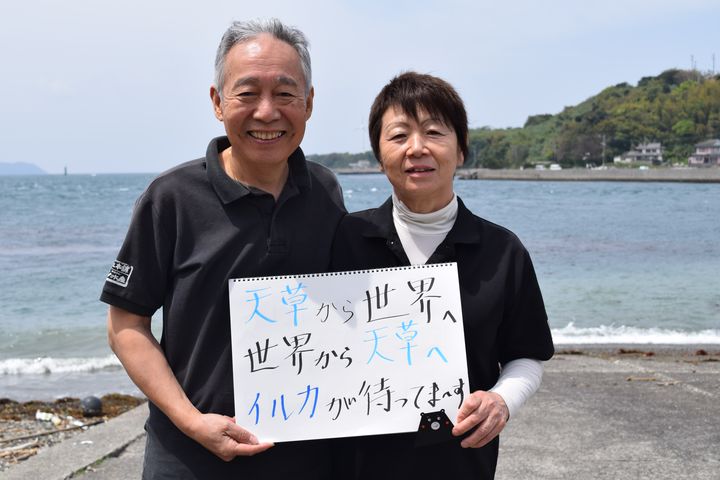 天草から世界へ
世界から天草へ
イルカが待ってま〜す